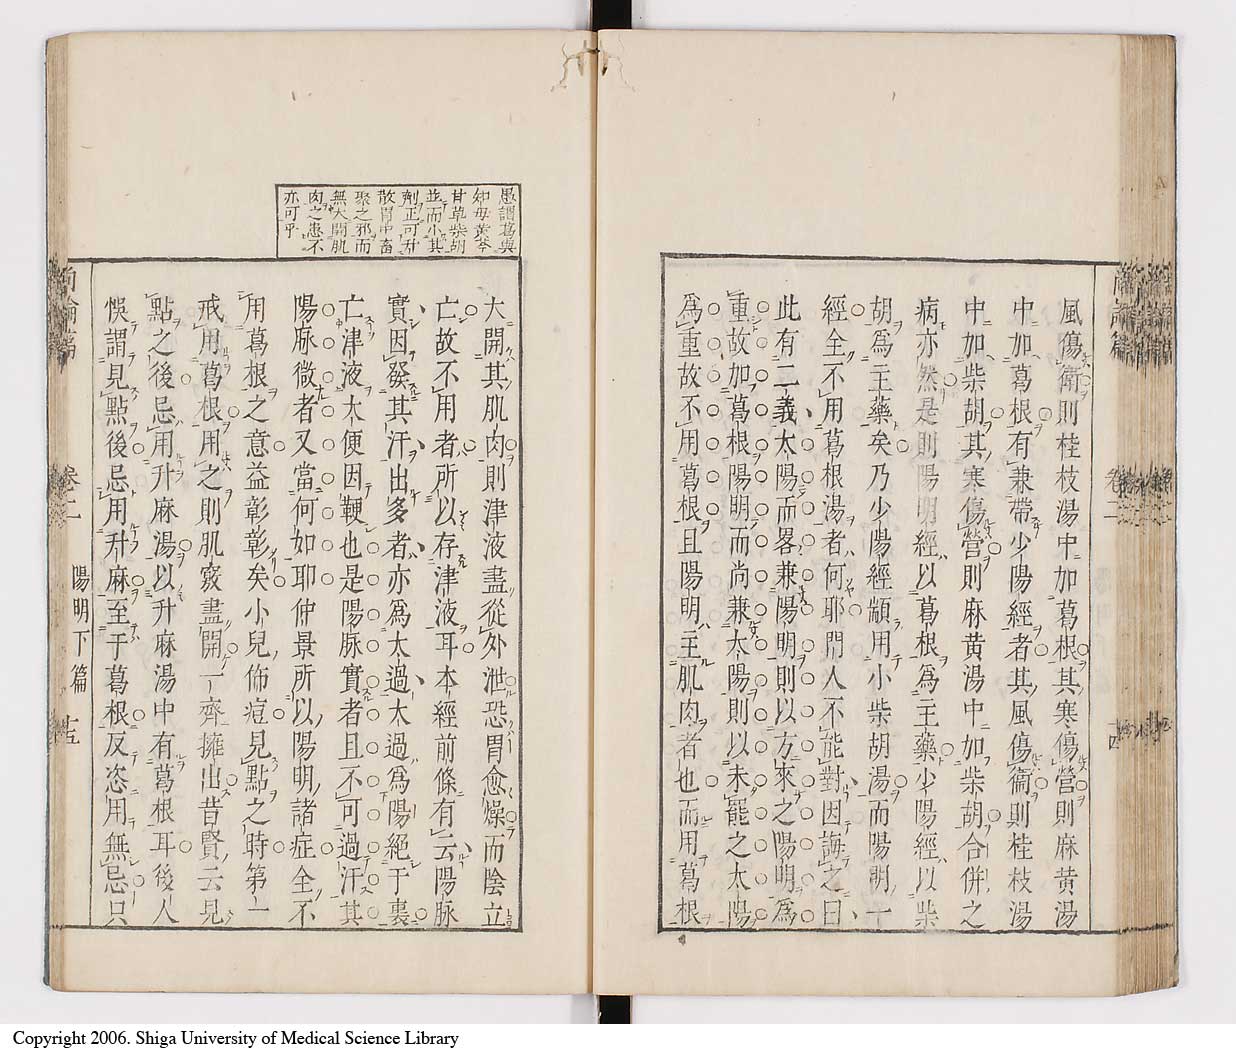 風傷衞則桂枝湯中加葛根其寒傷營則麻黄湯
中加葛根有兼帶少陽經者其風傷衞則桂枝湯
中加柴胡其寒傷營則麻黄湯中加柴胡合併之
病亦然是則陽明經以葛根爲主藥少陽經以柴
胡爲主藥矣乃少陽經顓用小柴胡湯而陽明一
經全不用葛根湯者何耶門人不能對因誨之曰
此有二義太陽而畧兼陽明則以方來之陽明爲
重故加葛根陽明而尚兼太陽則以未罷之太陽
爲重故不用葛根且陽明主肌肉者也而用葛根
卷二
十四
愚謂葛與
知母黄芩
甘草柴胡
並而小其
劑正可升
散胃中畜
聚之邪而
無大開肌
肉之患不
亦可乎
大開其肌肉則津液盡從外泄恐胃愈燥而陰立
亡故不用者所以存津液耳本經前條有云陽脉
實因發其汗出多者亦爲太過太過爲陽絕于裏
亡津液大便因鞕也是陽脉實者且不可過汗其
陽脉微者又當何如耶仲景所以陽明諸症全不
用葛根之意益彰彰矣小兒佈痘見點之時第一
戒用葛根用之則肌竅盡開一齊擁出昔賢云見
點之後忌用升麻湯以升麻湯中有葛根耳後人
悞謂見點後忌用升麻至于葛根反恣用無忌只
尚論篇
卷二
陽明下篇
十五
Copyright 2006. Shiga University of Medical Science Library